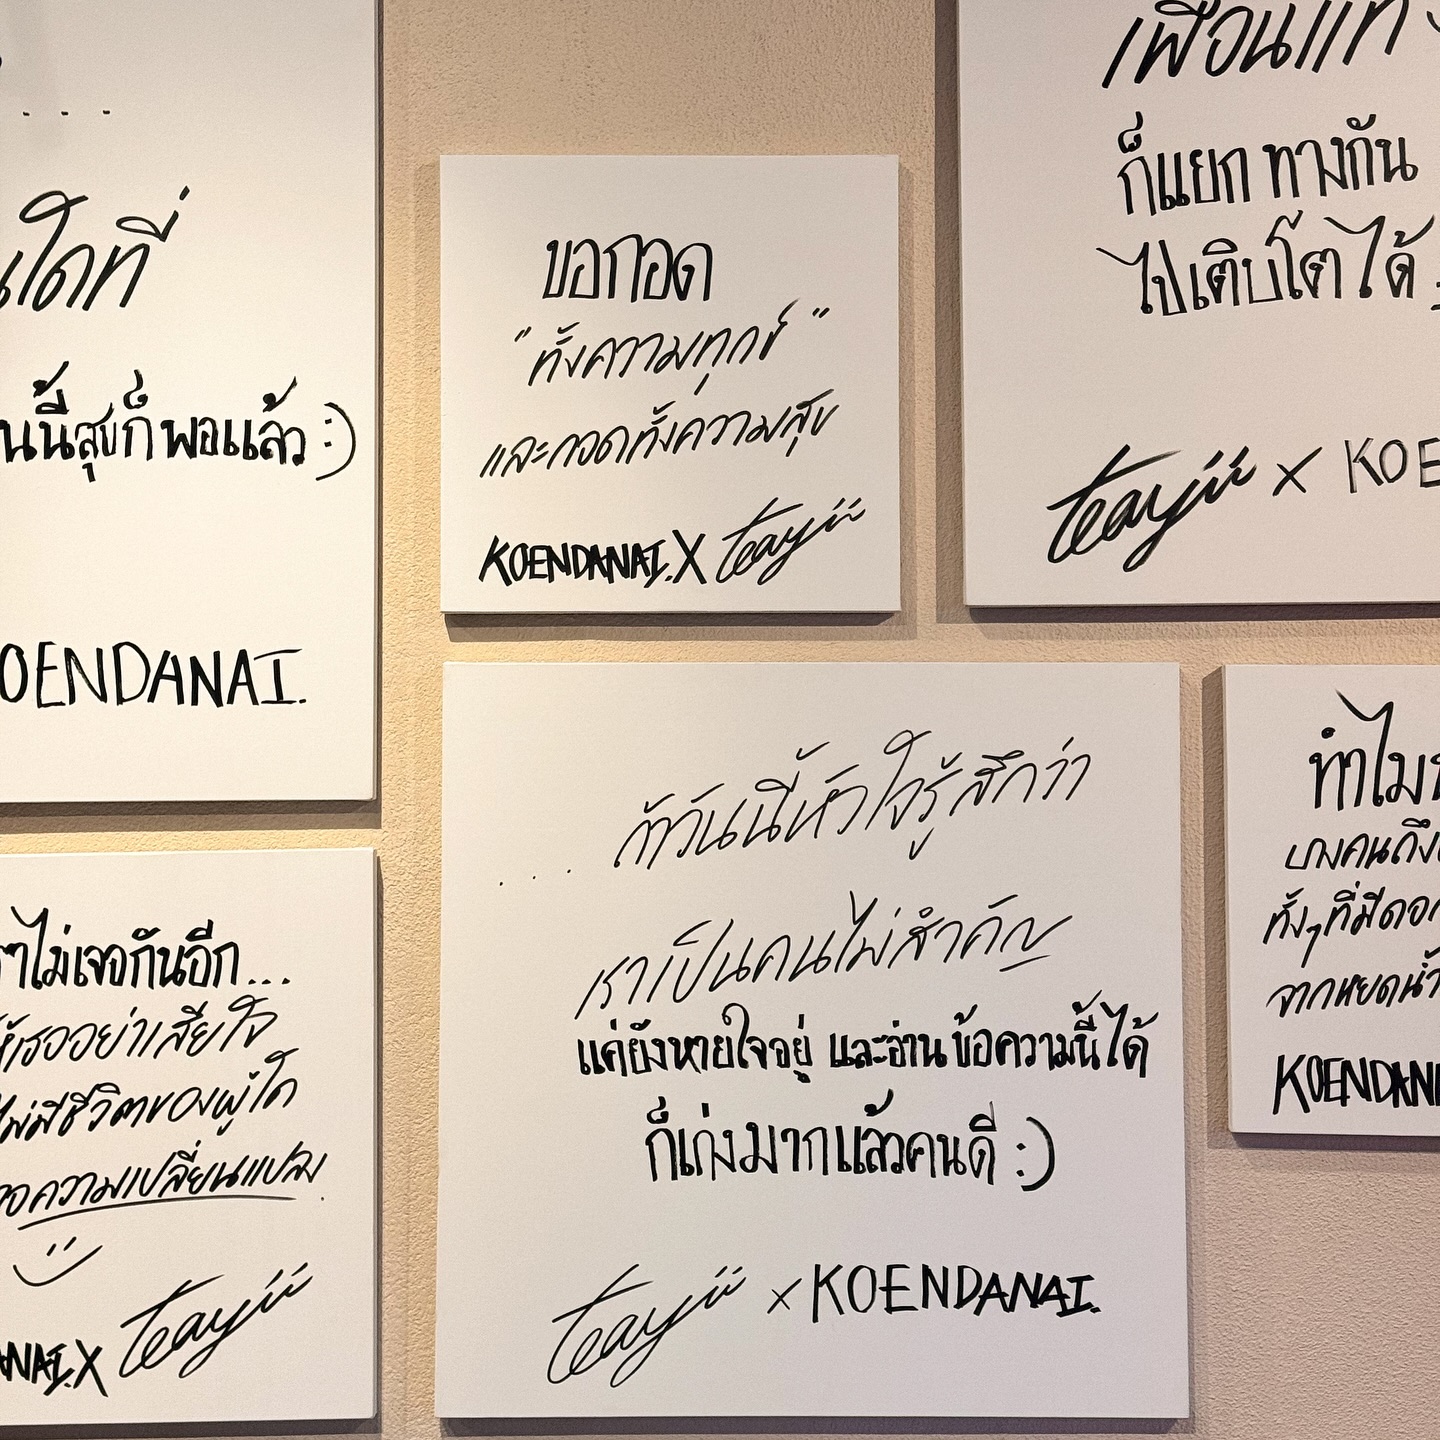 ....
ใดที่
นนี้สุขก็พอแล้ว :)
OENDANAI.
ขอกอด
"ทั้งความทุกข์"
และกอดทั้งความสุข
KOENDANAI. X teayii
เพื่อนแท้
ก็แยกทางกัน
ไปเติบโตได้
teayii x KOE
ไม่เจอกันอีก...
ให้เธออย่าเสียใจ
ไม่มีชีวิตของผู้ใด
ความเปลี่ยนแปลง
NAI. X teayii
.... ถ้าวันนี้หัวใจรู้สึกว่า
เราเป็นคนไม่สำคัญ
แค่ยังหายใจอยู่ และอ่านข้อความนี้ได้
ก็เก่งมากแล้วคนดี :)
teayii x KOENDANAI.
ทำไม
บางคนถึง
ทั้งๆที่มีดอก
จากหยดน้ำ
KOENDANA